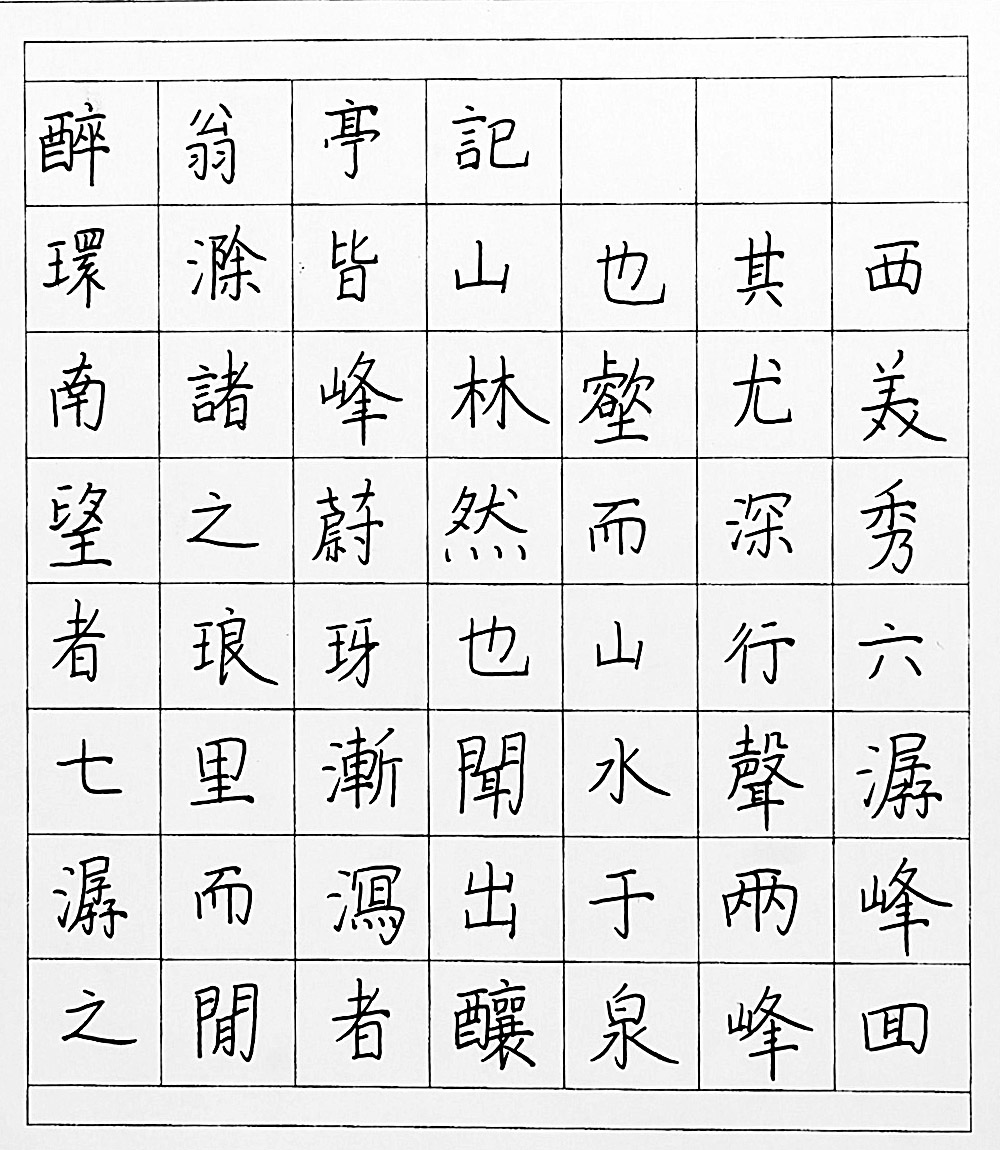 醉翁亭記
環滁皆山也其西
南諸峰林壑尤美
望之蔚然而深秀
者琅玡也山行六
七里漸聞水聲潺
潺而瀉出于两峰
之間者釀泉峰回